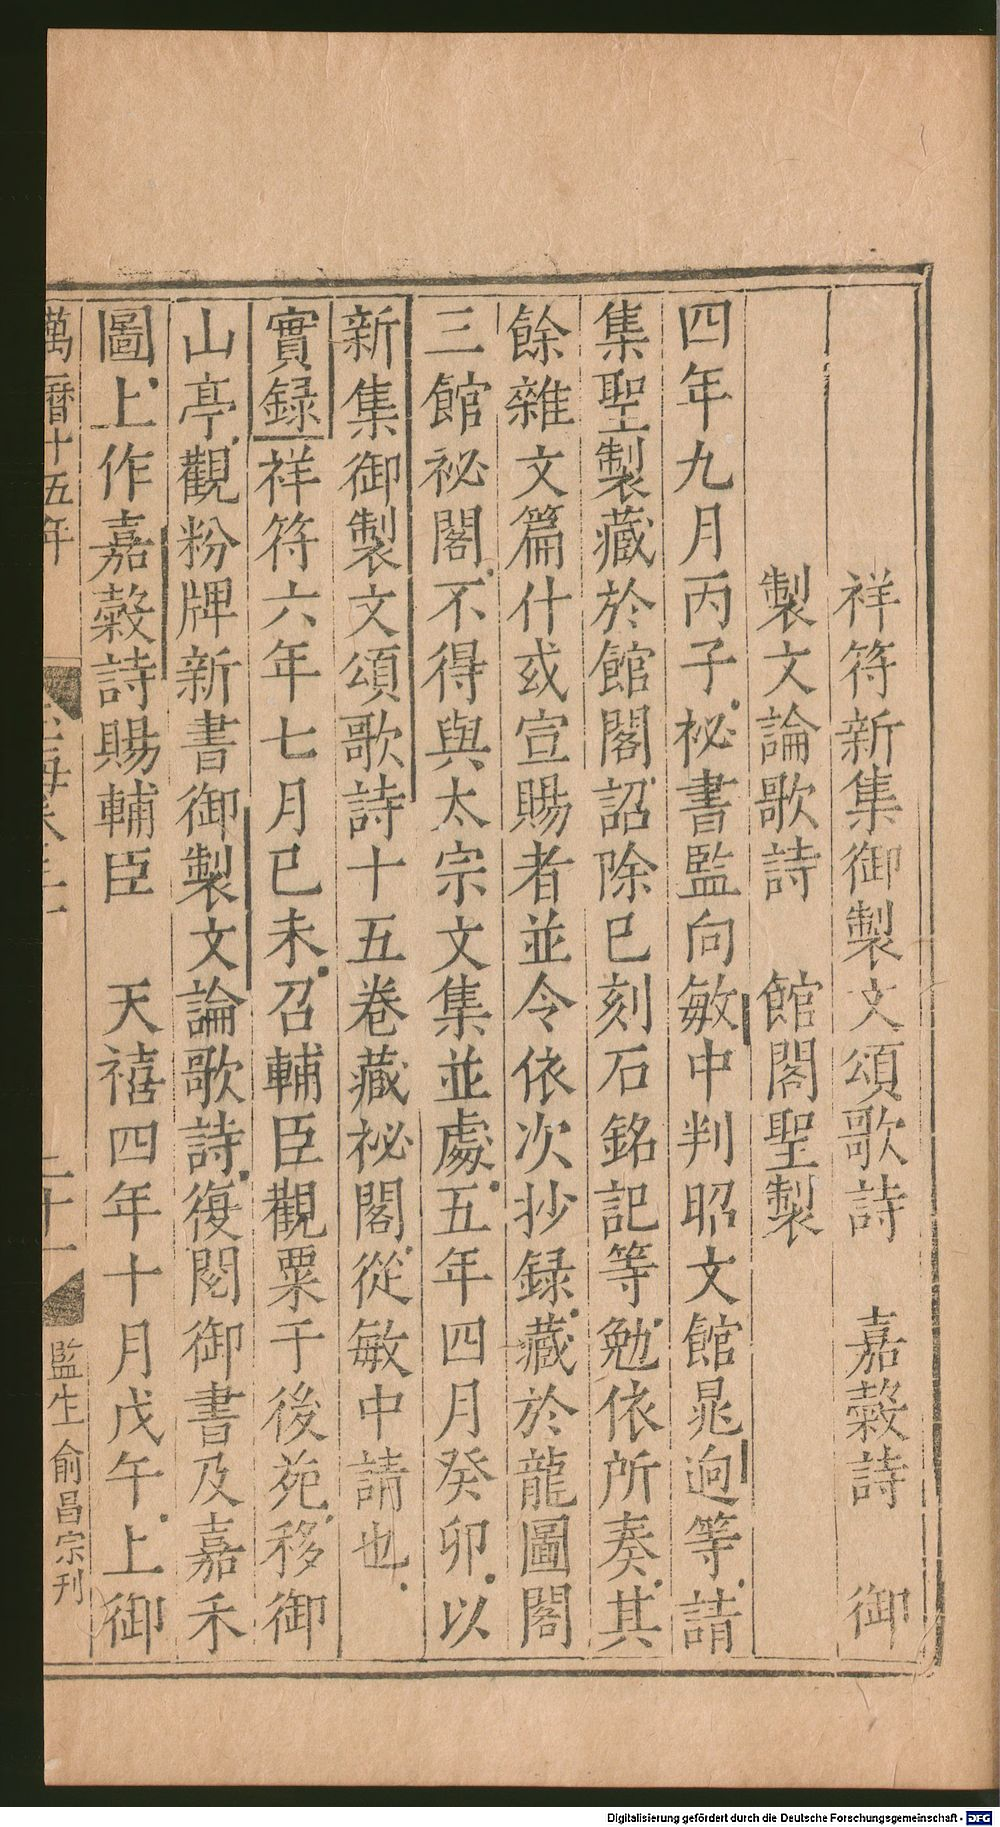 祥符新集御製文頌歌詩　嘉穀詩　御
製文論歌詩　館閣聖製
四年九月丙子祕書監向敏中判昭文館晁迥等請
集聖製藏於館閣詔除已刻石銘記等勉依所奏其
餘雜文篇什或宣賜者並令依次抄録藏於龍圖閣
三館祕閣不得與太宗文集並處五年四月癸卯以
新集御製文頌歌詩十五卷藏祕閣從敏中請也
實録祥符六年七月已未召輔臣觀粟于後苑移御
山亭觀粉牌新書御製文論歌詩復閱御書及嘉禾
圖上作嘉穀詩賜輔臣　天禧四年十月戊午上御
萬曆十五年
二十一
監生俞昌宗刊
Digitalisierung gefördert durch die Deutsche Forschungsgemeinschaft - DFG